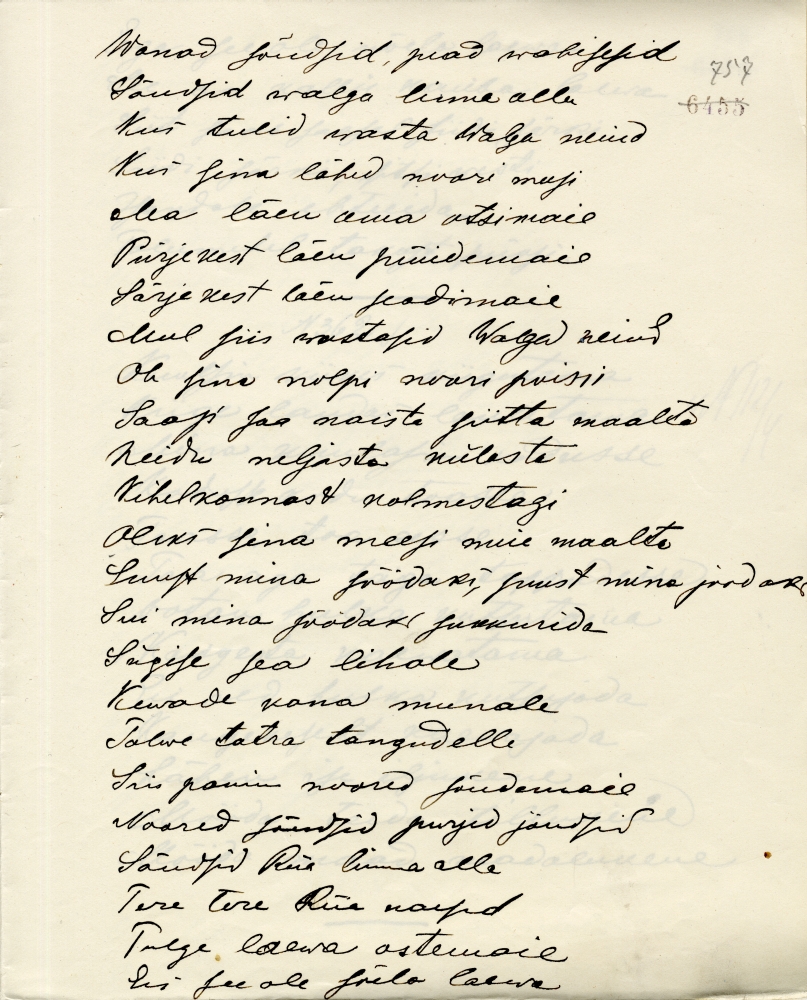 Wanad sõudsid, pead wabisesid
Sõudsid walga linna alla
Kus tulid wasta Walga neiud
Kus sina lähed noori mesi
Ma läen oma otsimaie
Pürjekest läen püüdemaie
Särjekest läen seadimaie
Mul siis wastasid Walga neiud
Oh sina nolpi noori poissi
Saasi saa naista siitta maalta
Neidu neljasta külasta
Kihelkonnast kolmestagi
Oleks sina meesi mie maalta
Suust mina söödaks, suust mina joodaks
Sui mina söödaks sukkurida
Sügise sea lihale
Kewade kana munale
Talwe tatra tangudelle
Siis panin noored sõudemaie
Noored sõudsid purjed jõudsid
Sõudsid Riia linna alla
Tere tere Riia naesed
Tulge laewa ostemaie
Eis see ole sõela laewa
757
6455